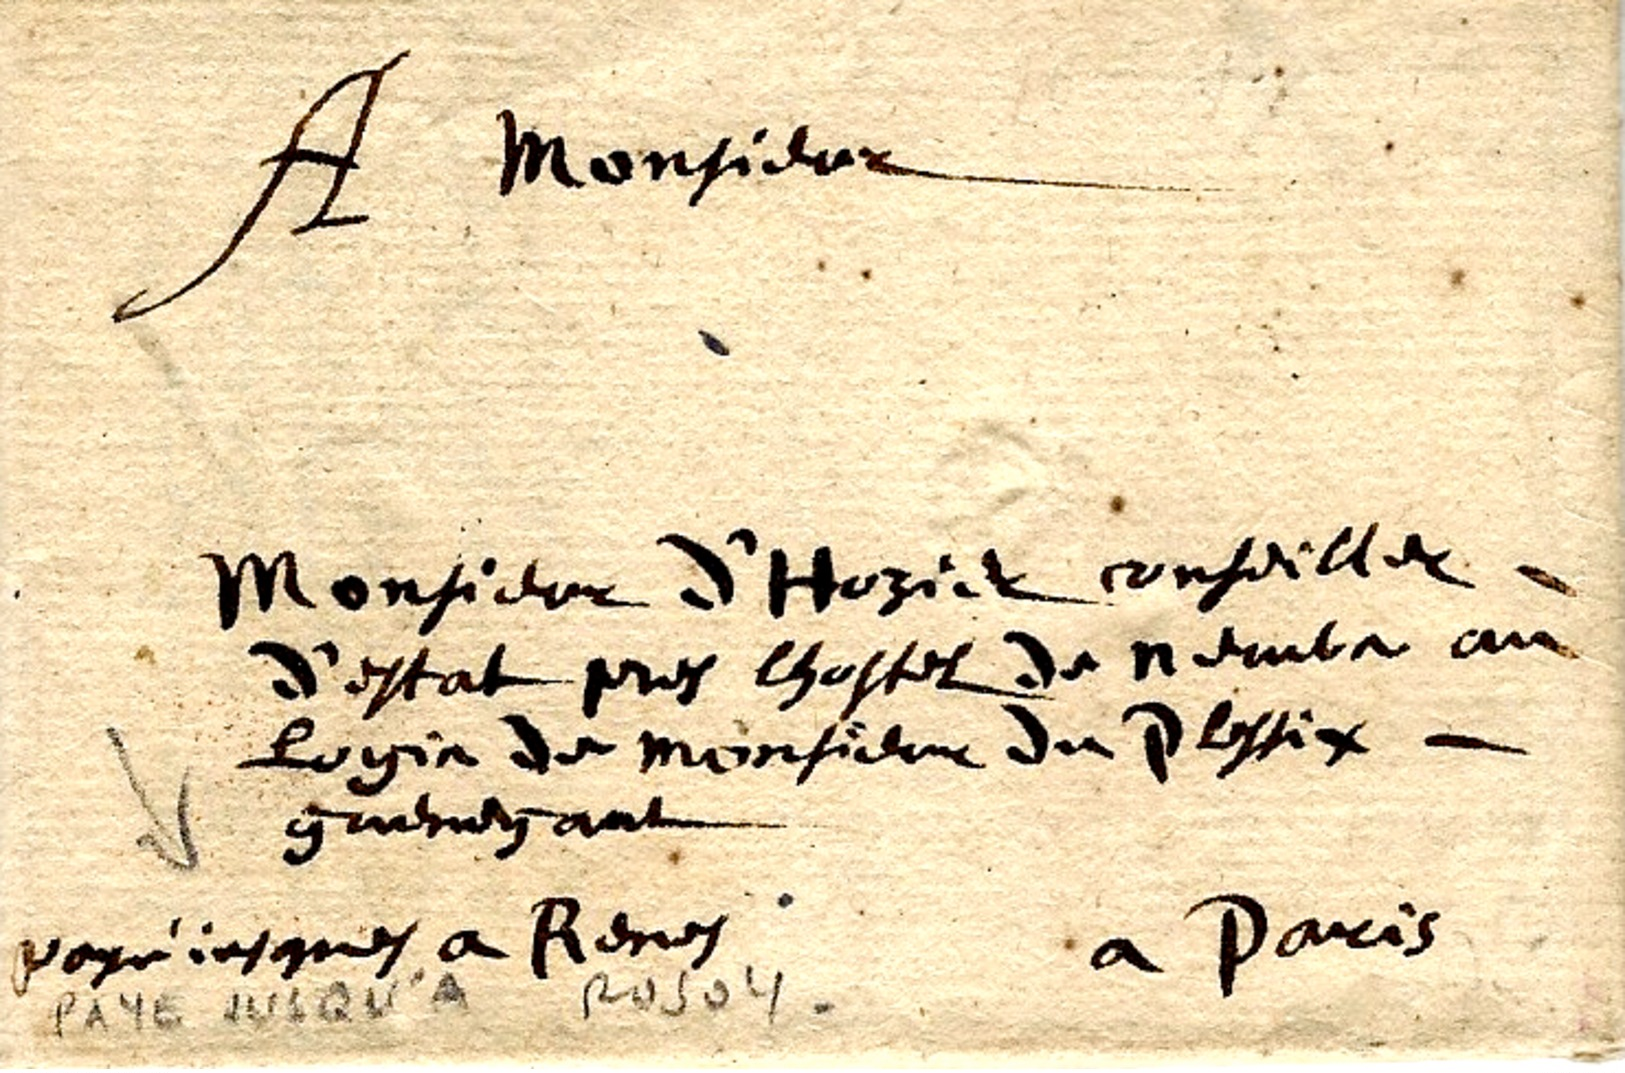 A Monsieur
Monsieur d'Hozier conseiller
d'estat pres lhostel de nemurs au
Logis de monsieur du Plessix
payé iusques a Renes
a Paris
PAYE JUSQU'A ROSOY.